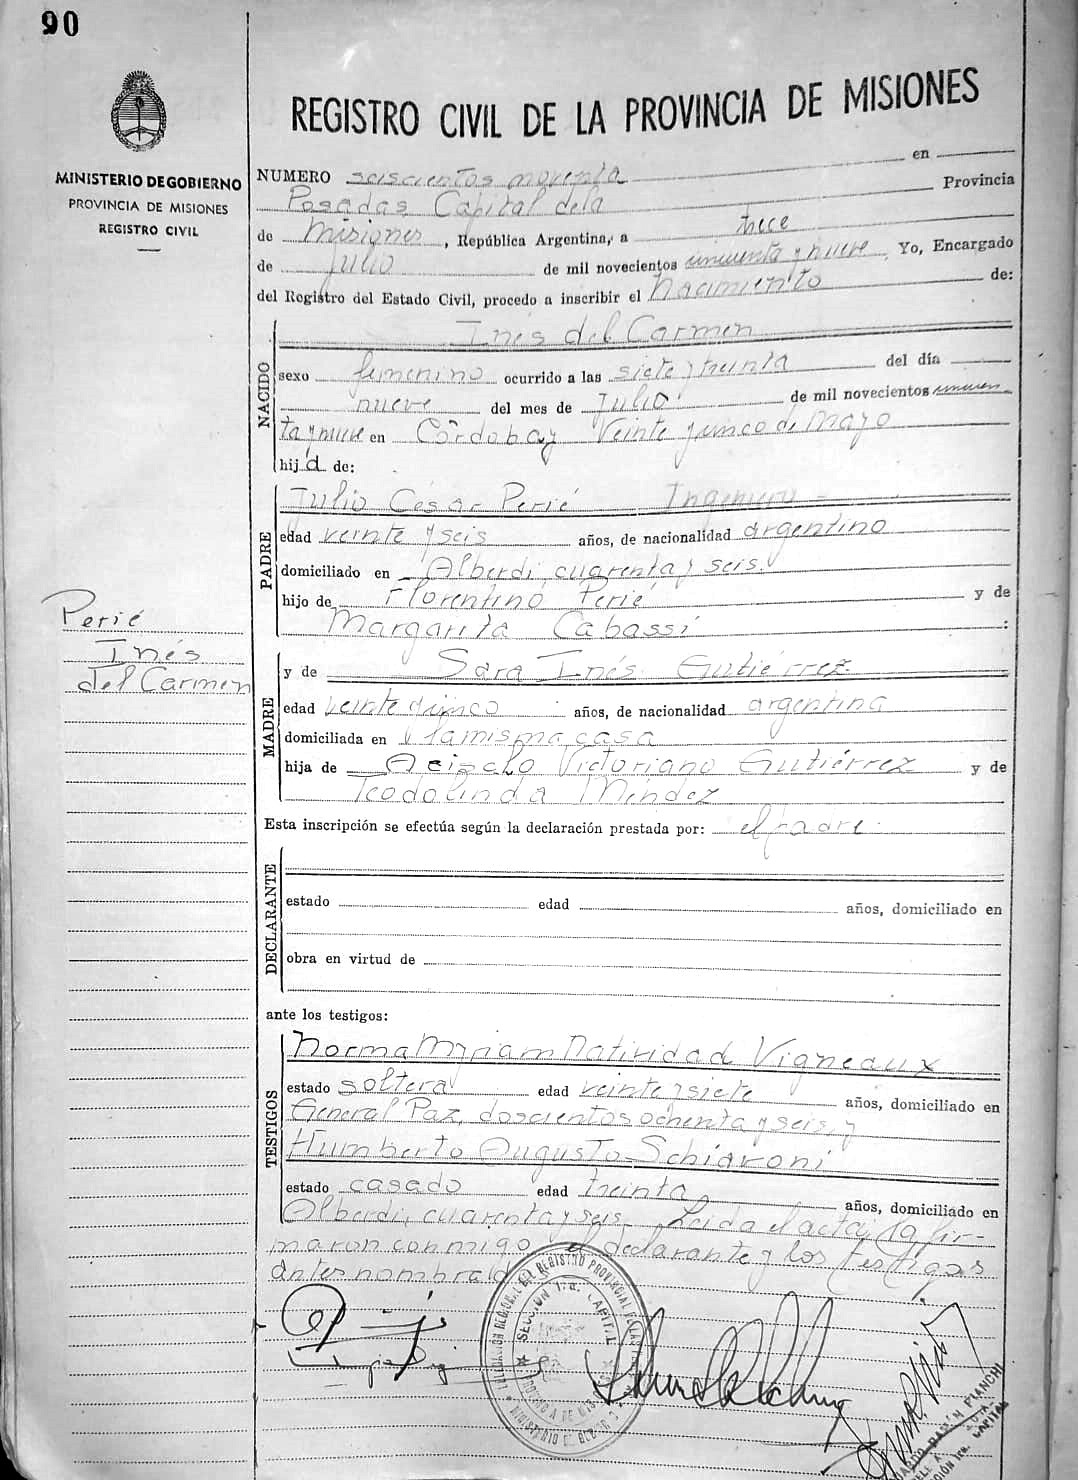 90
MINISTERIO DE GOBIERNO
PROVINCIA DE MISIONES
REGISTRO CIVIL
REGISTRO CIVIL DE LA PROVINCIA DE MISIONES
NUMERO seiscientos noventa en
Posadas Capital de la Provincia
de Misiones, República Argentina, a trece
de Julio de mil novecientos cincuenta y nueve Yo, Encargado
del Registro del Estado Civil, procedo a inscribir el nacimiento de:
NACIDO
Inés del Carmen
sexo femenino ocurrido a las siete y treinta del día
nueve del mes de Julio de mil novecientos cincuen
ta y nueve en Córdoba y Veinte y cinco de Mayo
hija de:
PADRE
Julio César Perié Ingeniero
edad veinte y seis años, de nacionalidad argentino
domiciliado en Alberdi, cuarenta y seis.
hijo de Florentino Perié y de
Margarita Cabassi :
Perié
Inés
del Carmen
MADRE
y de Sara Inés Gutiérrez
edad veinte y cinco años, de nacionalidad argentina
domiciliada en la misma casa
hija de Acisclo Victoriano Gutiérrez y de
Teodolinda Méndez
Esta inscripción se efectúa según la declaración prestada por: el padre
DECLARANTE
estado edad años, domiciliado en
obra en virtud de
ante los testigos:
TESTIGOS
Norma Myriam Natividad Vigneaux
estado soltera edad veinte y siete años, domiciliado en
General Paz, doscientos ochenta y seis, y
Humberto Augusto Schiavoni
estado casado edad treinta años, domiciliado en
Alberdi, cuarenta y seis. Leida el acta, la fir-
maron conmigo, el declarante y los testigos
antes nombrados
REGISTRO PROVINCIAL DE LAS
SECCION 1ra. CAPITAL